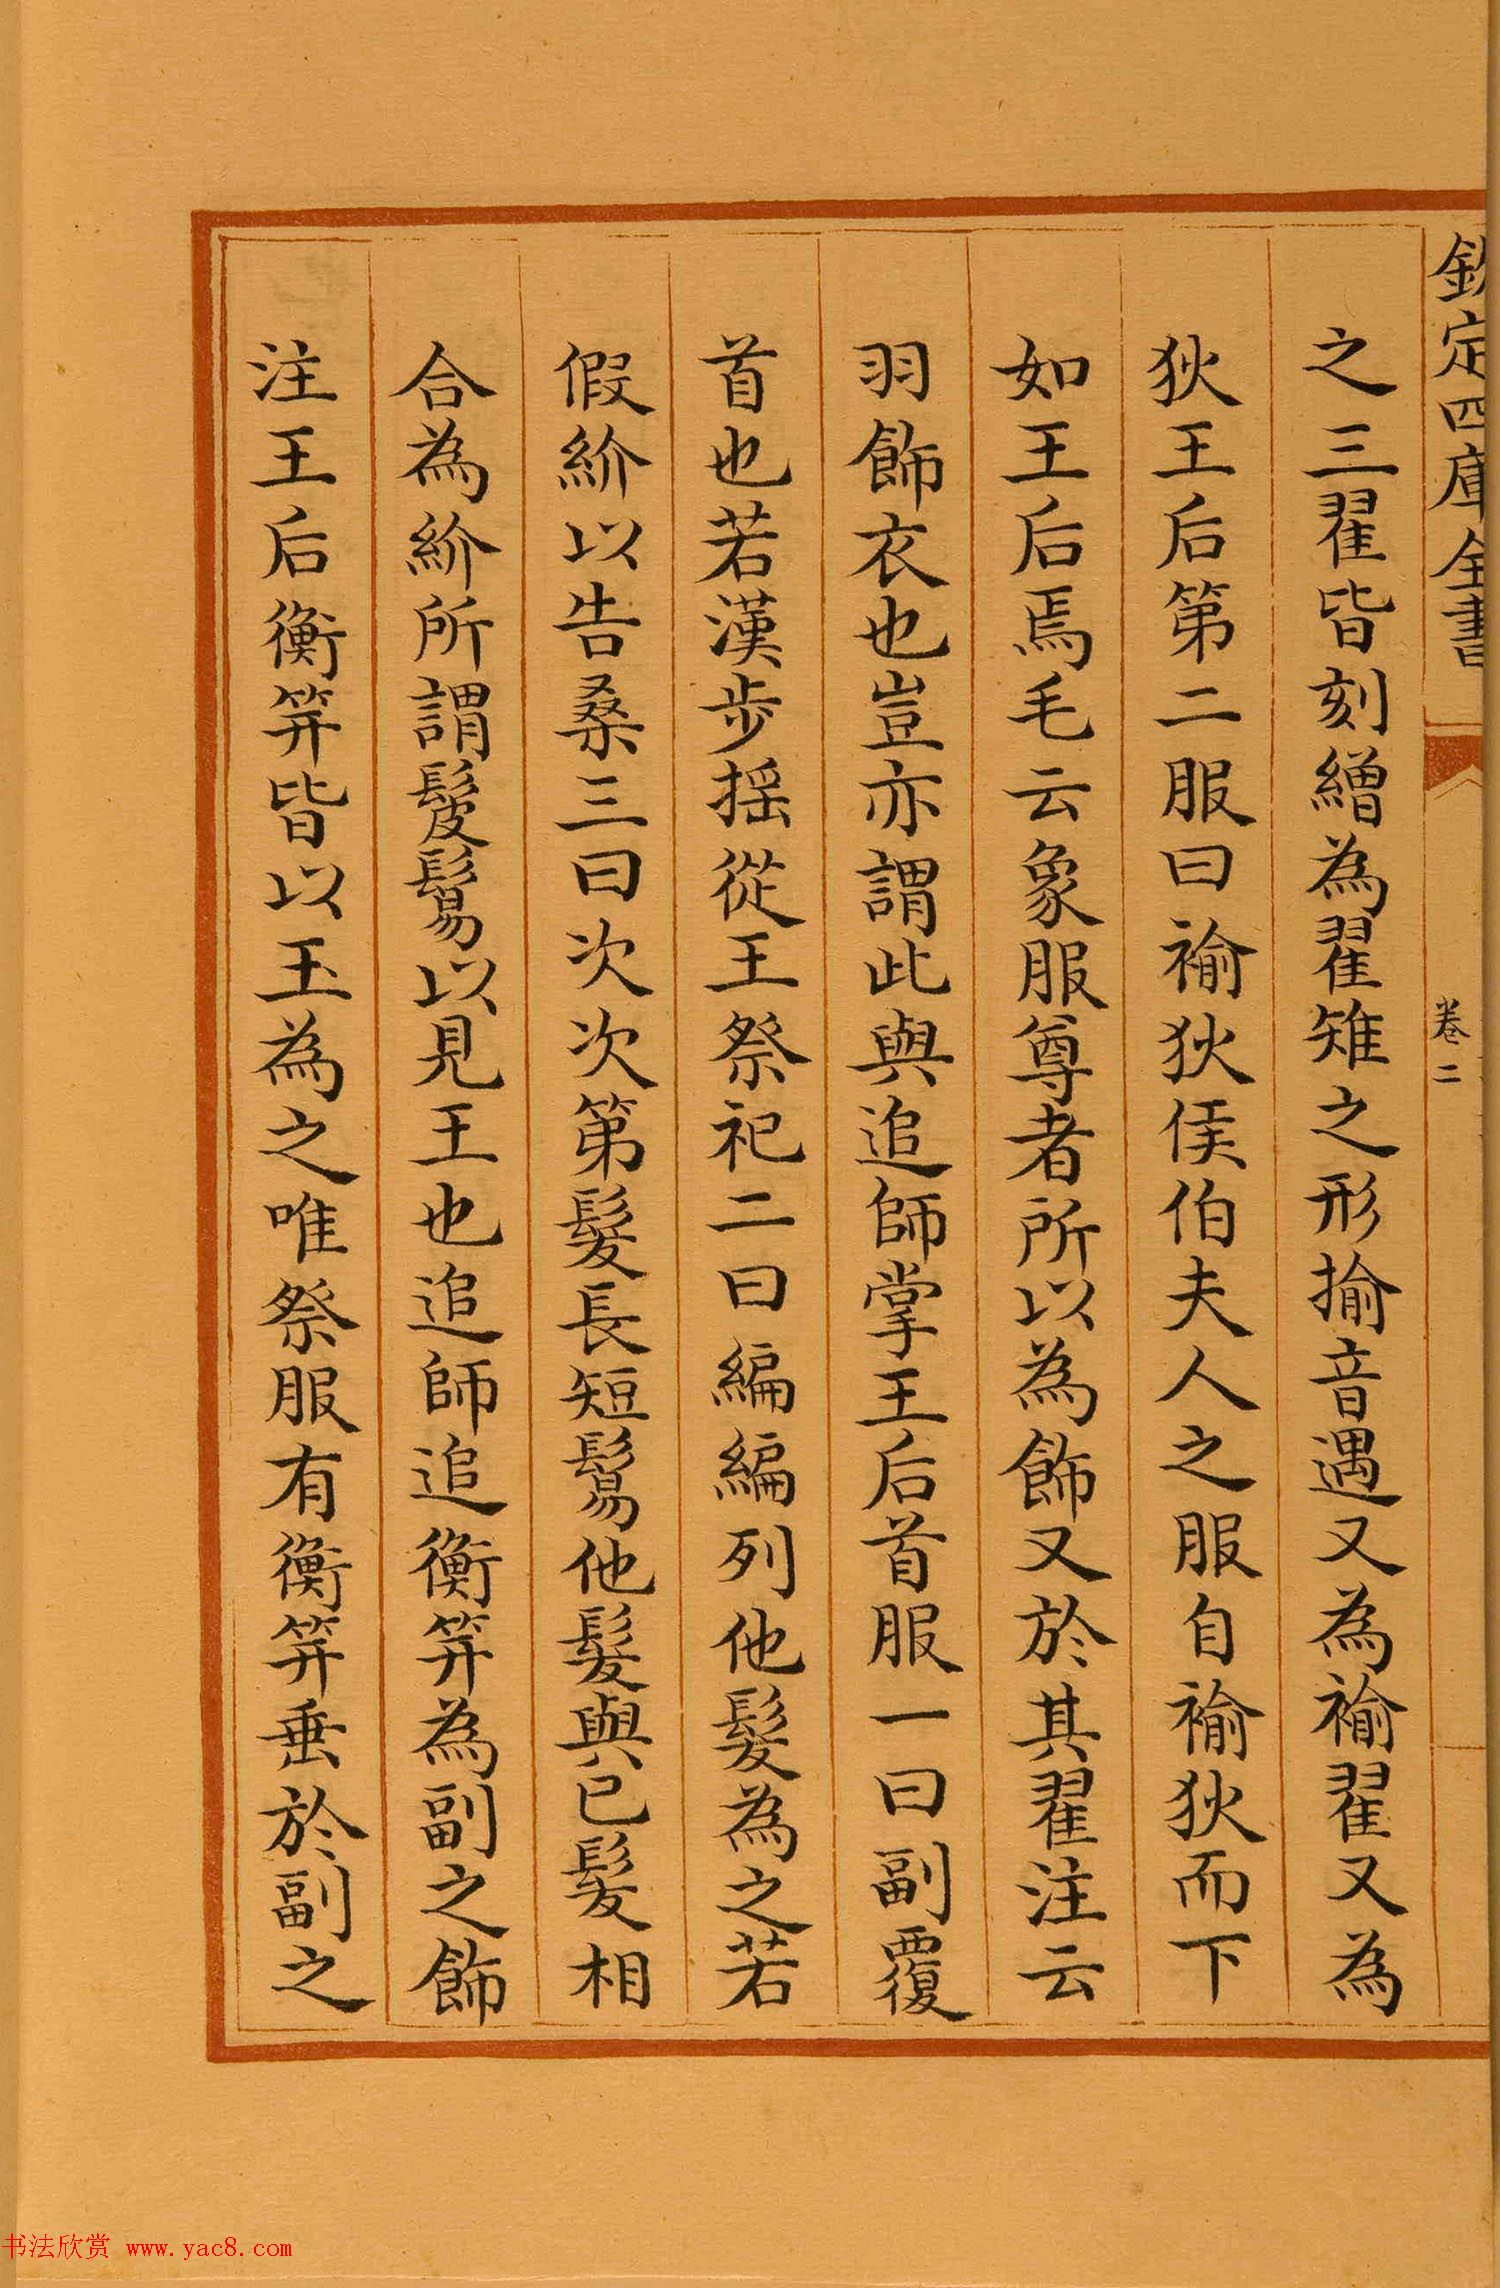 欽定四庫全書
卷二
之三翟皆刻繒為翟雉之形揄音遇又為褕翟又為
狄王后第二服曰褕狄侯伯夫人之服自褕狄而下
如王后焉毛云象服尊者所以為飾又於其翟注云
羽飾衣也豈亦謂此與追師掌王后首服一曰副覆
首也若漢步搖從王祭祀二曰編編列他髮為之若
假紒以告桑三曰次次第髮長短髢他髮與已髮相
合為紒所謂髲髢以見王也追師追衡笄為副之飾
注王后衡笄皆以玉為之唯祭服有衡笄垂於副之
书法欣赏 www.yac8.com